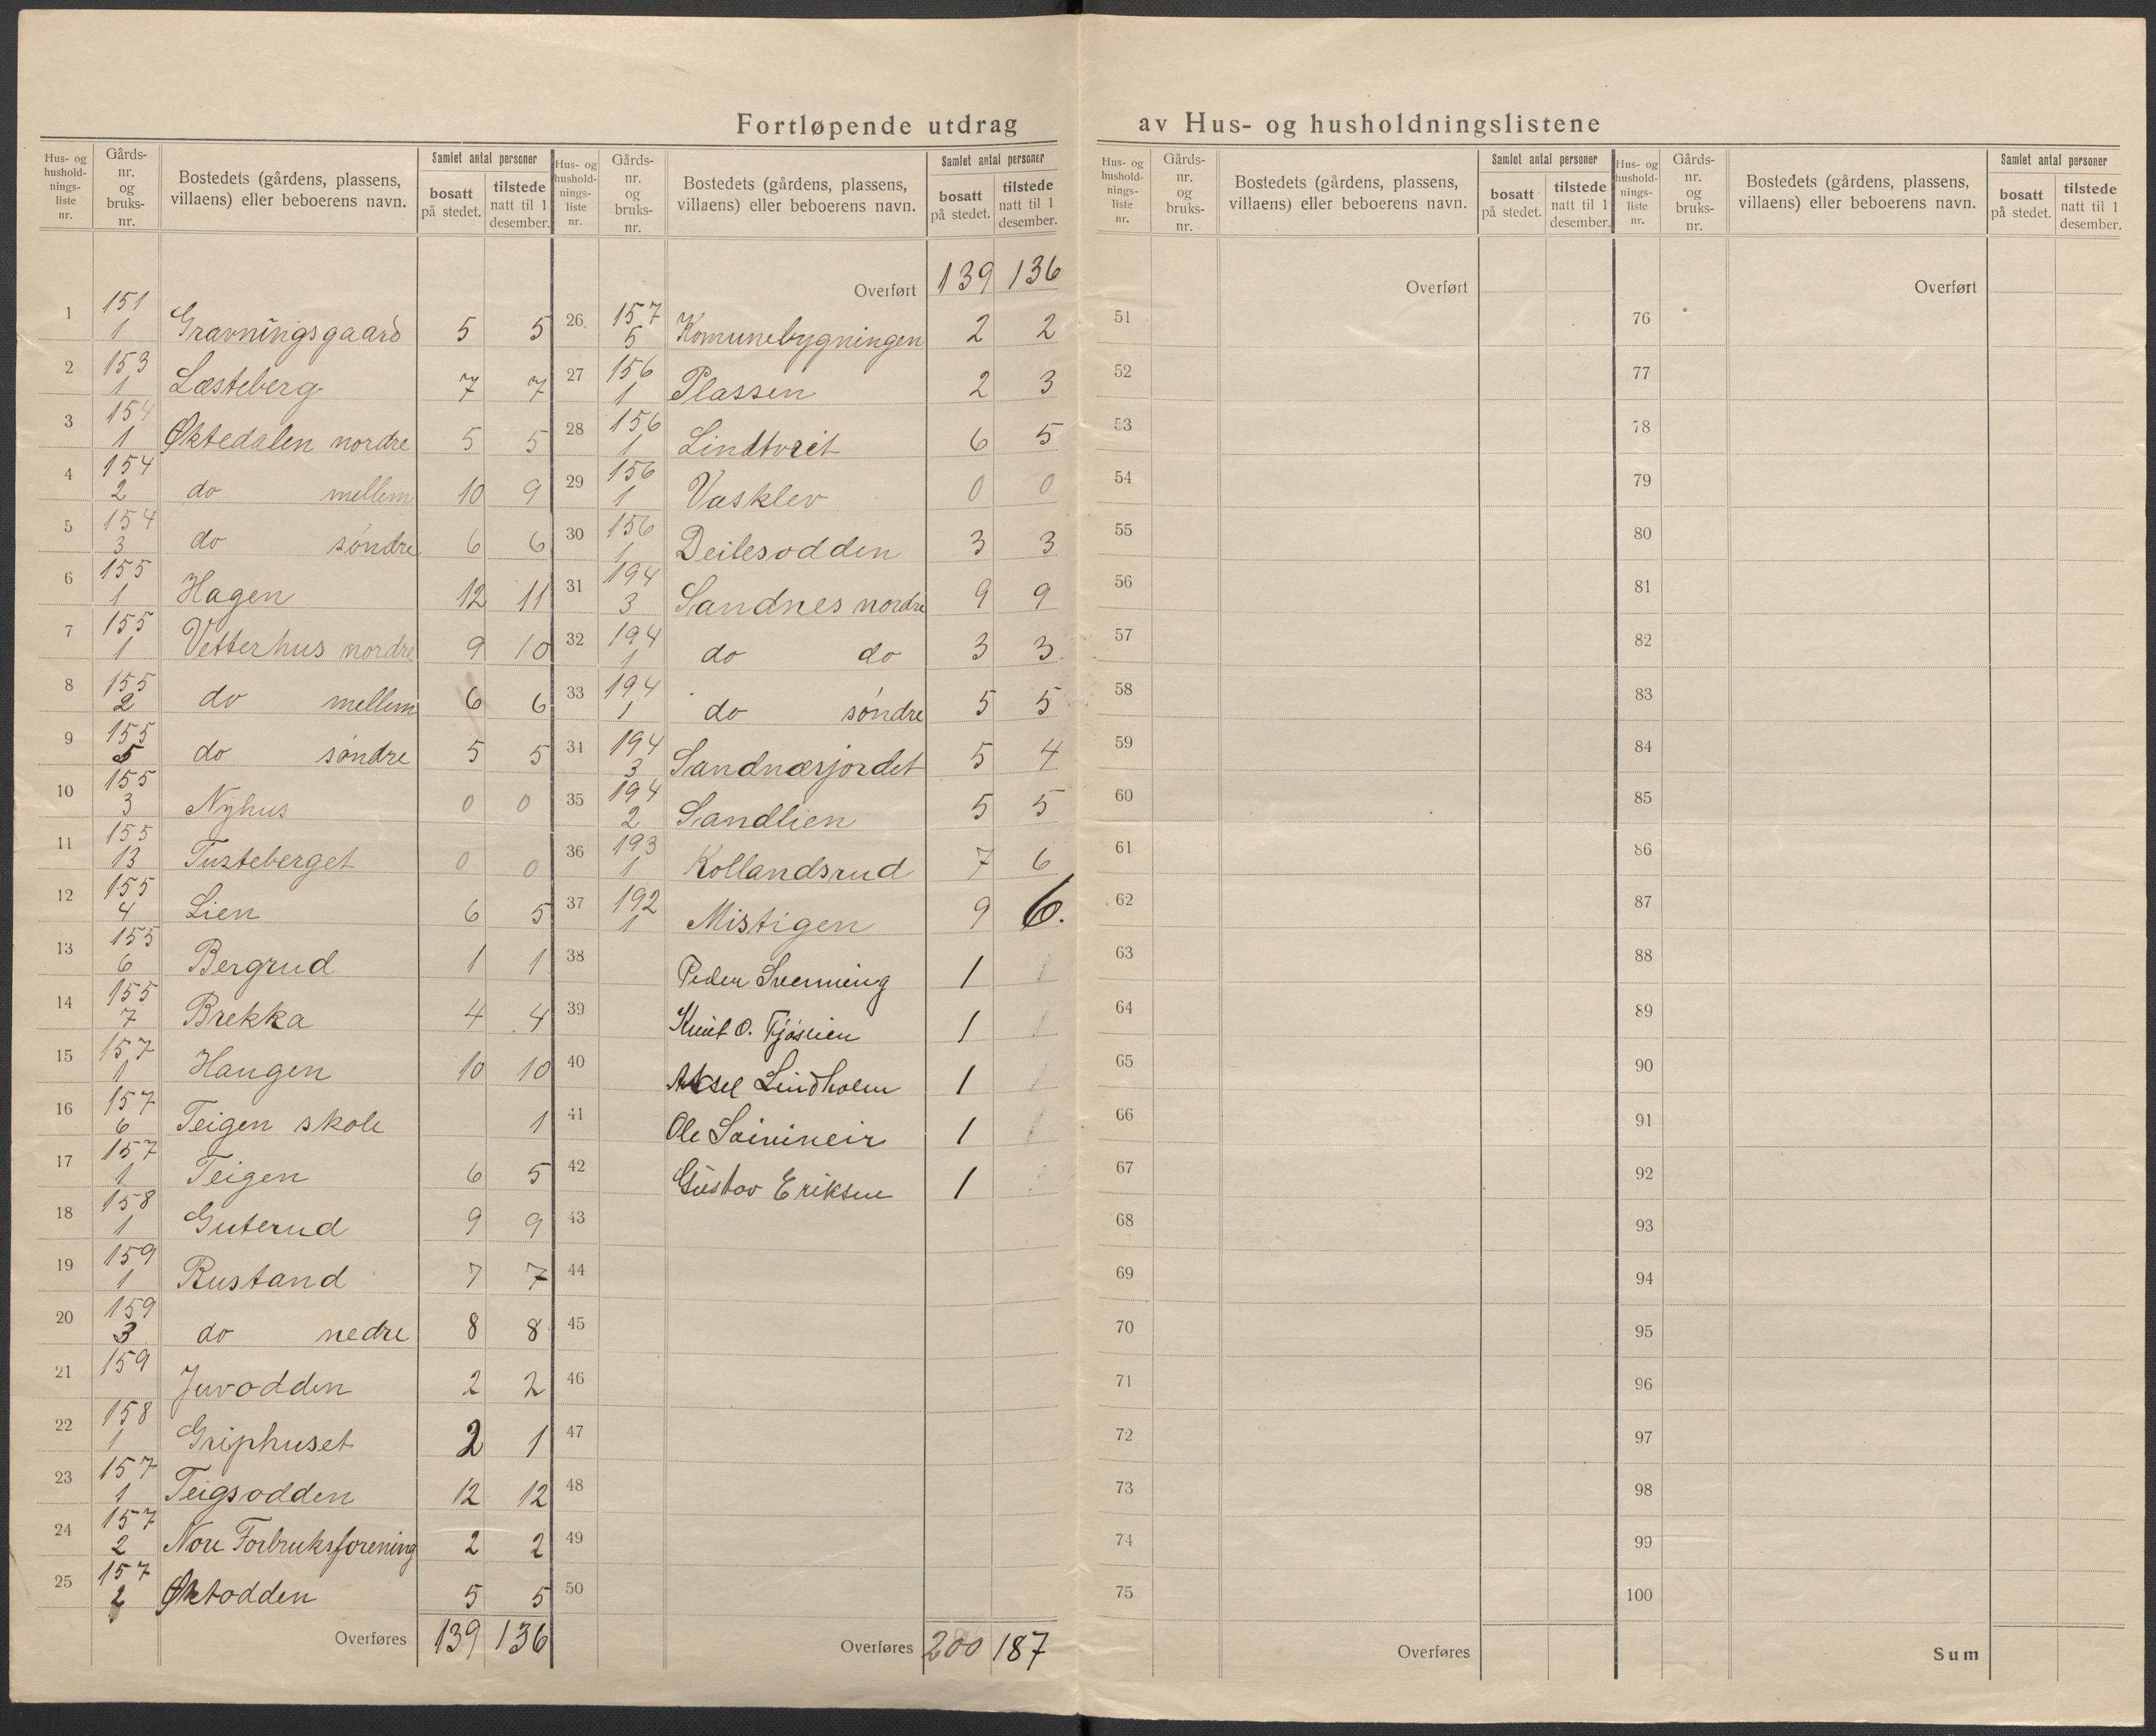 Fortløpende utdrag av Hus- og husholdningslistene
Hus- og hushold-nings-liste nr. | Gårds-nr. og bruks-nr. | Bostedets (gårdens, plassens, villaens) eller beboerens navn. | Samlet antal personer | bosatt på stedet. | tilstede natt til 1 desember.
1 151 1 Gravningsgaard 5 5
2 153 1 Læsteberg 7 7
3 154 1 Øktedalen nordre 5 5
4 154 2 do mellem 10 9
5 154 3 do søndre 6 6
6 155 1 Hagen 12 11
7 155 1 Vetterhus nordre 9 10
8 155 2 do mellem 6 6
9 155 5 do søndre 5 5
10 155 3 Nyhus 0 0
11 155 13 Tusteberget 0 0
12 155 4 Lien 6 5
13 155 6 Bergrud 1 1
14 155 7 Brekka 4 4
15 157 1 Haugen 10 10
16 157 6 Teigen skole 1
17 157 1 Teigen 6 5
18 158 1 Guterud 9 9
19 159 1 Rustand 7 7
20 159 3 do nedre 8 8
21 159 Juvodden 2 2
22 158 1 Griphuset 2 1
23 157 1 Teigsodden 12 12
24 157 2 Nore Forbruksforening 2 2
25 157 2 Øktodden 5 5
Overføres 139 136
Hus- og hushold-nings-liste nr. | Gårds-nr. og bruks-nr. | Bostedets (gårdens, plassens, villaens) eller beboerens navn. | Samlet antal personer | bosatt på stedet. | tilstede natt til 1 desember.
Overført 139 136
26 157 5 Komunebygningen 2 2
27 156 1 Plassen 2 3
28 156 1 Lindtveit 6 5
29 156 1 Vasklev 0 0
30 156 1 Deilesodden 3 3
31 194 3 Sandnes nordre 9 9
32 194 1 do do 3 3
33 194 1 do søndre 5 5
34 194 3 Sandnæsjordet 5 4
35 194 2 Sandlien 5 5
36 193 1 Kollandsrud 7 6
37 192 1 Mistigen 9 6.
38 Peder 1 1
39 Knut O. 1 1
40 Aksel Lindholm 1 1
41 Ole 1 1
42 Gustav Eriksen 1
43
44
45
46
47
48
49
50
Overføres 200 187
Hus- og hushold-nings-liste nr. | Gårds-nr. og bruks-nr. | Bostedets (gårdens, plassens, villaens) eller beboerens navn. | Samlet antal personer | bosatt på stedet. | tilstede natt til 1 desember.
Overført
51
52
53
54
55
56
57
58
59
60
61
62
63
64
65
66
67
68
69
70
71
72
73
74
75
Overføres
Hus- og hushold-nings-liste nr. | Gårds-nr. og bruks-nr. | Bostedets (gårdens, plassens, villaens) eller beboerens navn. | Samlet antal personer | bosatt på stedet. | tilstede natt til 1 desember.
Overført
76
77
78
79
80
81
82
83
84
85
86
87
88
89
90
91
92
93
94
95
96
97
98
99
100
Sum